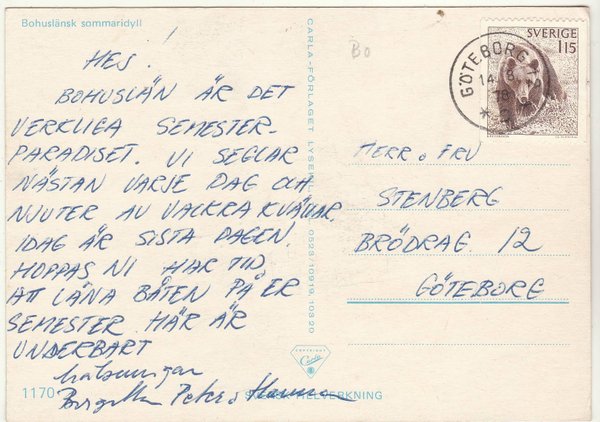 Bohuslänsk sommaridyll
HEJ!
BOHUSLÄN ÄR DET
VERKLIGA SEMESTER-
PARADISET. VI SEGLAR
NÄSTAN VARJE DAG OCH
NJUTER AV VACKRA KVÄLLAR.
IDAG ÄR SISTA DAGEN.
HOPPAS NI HAR TID
ATT LÅNA BÅTEN PÅ ER
SEMESTER. HÄR ÄR
UNDERBART
hälsningar
Birgitta Peter o Hanna
1170
SVENSK TILLVERKNING
CARLA-FÖRLAGET LYSEKIL 0523/10919, 10320
COPYRIGHT
Carla
BO
SVERIGE
115
GÖTEBORG
14 8
78
HERR o FRU
STENBERG
BRÖDRAG. 12
GÖTEBORG